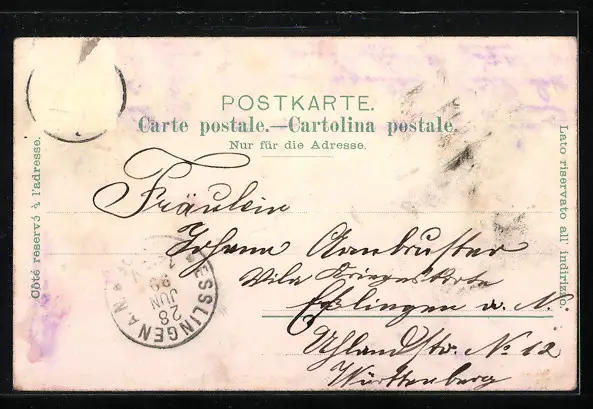 POSTKARTE.
Carte postale.—Cartolina postale.
Nur für die Adresse.
Côté réservé à l'adresse.
Lato riservato all' indirizzo.
Fräulein
Johann Armbruster
Villa
Esslingen a. N.
Uhlandstr. No 12
Württemberg
ESSLINGEN A.N.
28
JUN